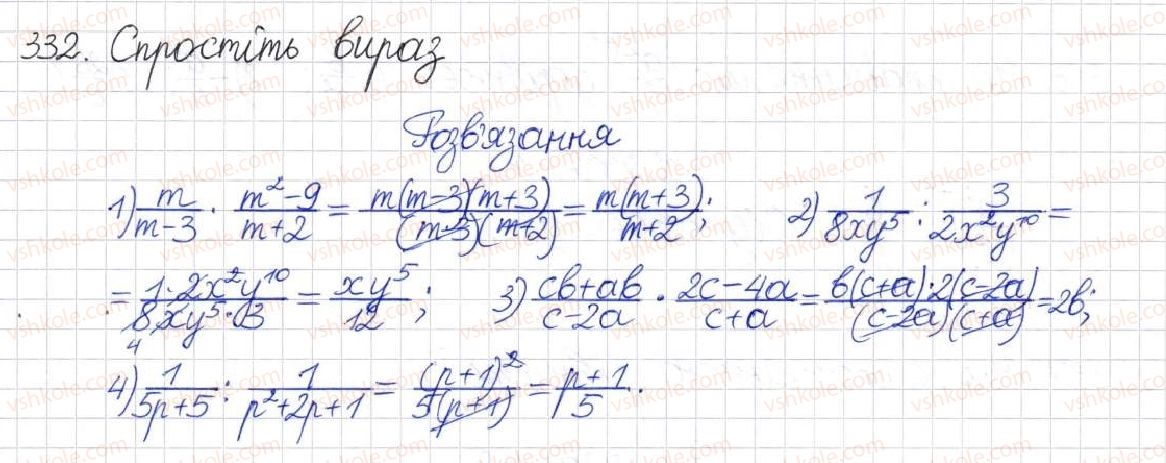 332. Спростіть вираз
Розв'язання
1) m/(m-3) · (m²-9)/(m+2) = m(m-3)(m+3)/((m-3)(m+2)) = m(m+3)/(m+2); 2) 1/(8xy⁵) : 3/(2x²y¹⁰) =
= 1·2x²y¹⁰/(8xy⁵·3) = xy⁵/12; 3) (cb+ab)/(c-2a) · (2c-4a)/(c+a) = b(c+a)·2(c-2a)/((c-2a)(c+a)) = 2b;
4
4) 1/(5p+5) : 1/(p²+2p+1) = (p+1)²/(5(p+1)) = (p+1)/5.
vshkole.com